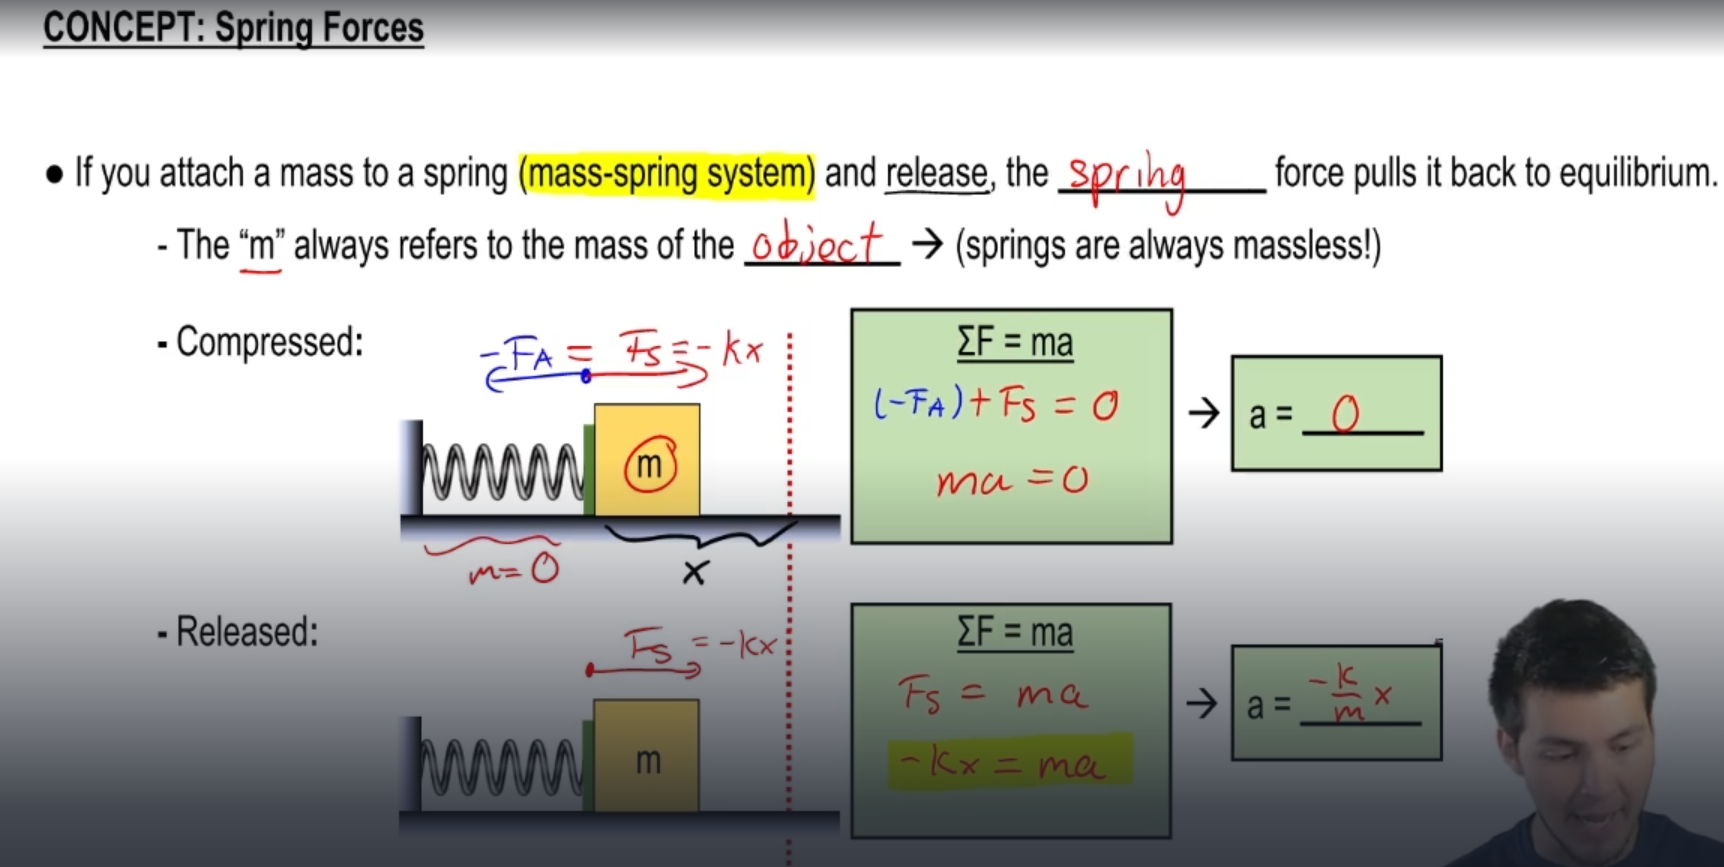 CONCEPT: Spring Forces
● If you attach a mass to a spring (mass-spring system) and release, the spring force pulls it back to equilibrium.
- The “m” always refers to the mass of the object → (springs are always massless!)
- Compressed:
-FA = Fs = -kx
m
m=0
x
ΣF = ma
(-FA) + Fs = 0
ma = 0
→ a = 0
- Released:
Fs = -kx
m
ΣF = ma
Fs = ma
-kx = ma
→ a = -k/m x